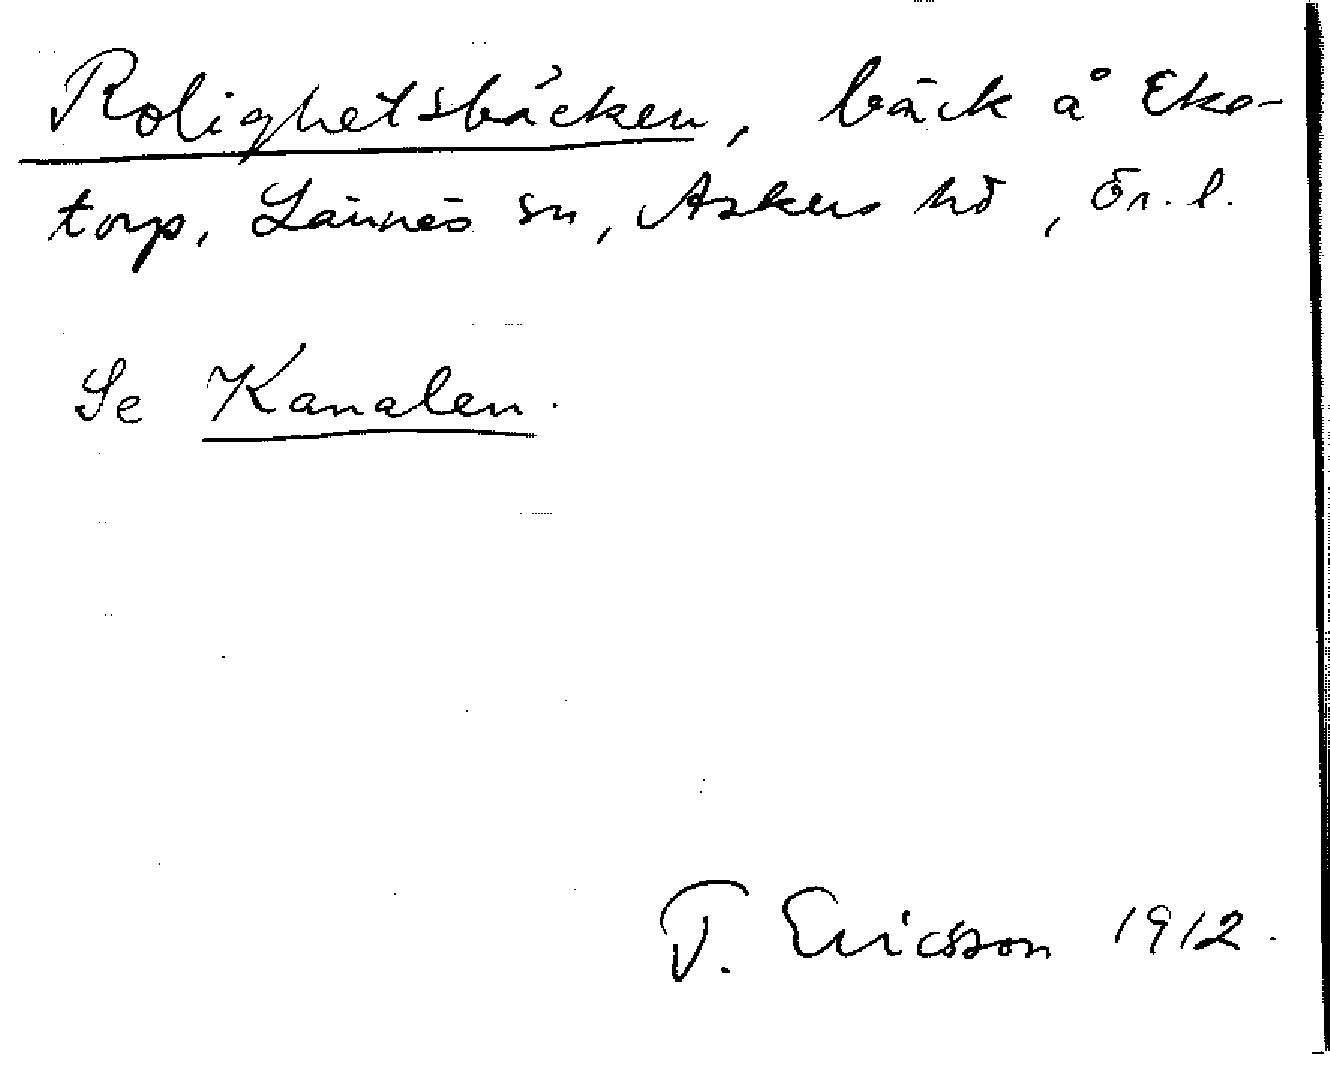 Rolighetsbäcken, bäck å Eke-
torp, Lännäs sn, Askers hd, Ör. l.
Se Kanalen.
T. Ericsson 1912.